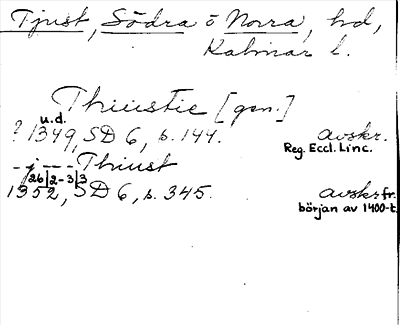 Tjust, Södra o Norra, hd,
Kalmar l.
Thiustie [gen.]
u.d.
? 1349, SD 6, s. 144. avskr.
Reg. Eccl. Linc.
- j - - - Thiust
26/2-3/3
1352, SD 6, s. 345. avskr. fr.
början av 1400-t.